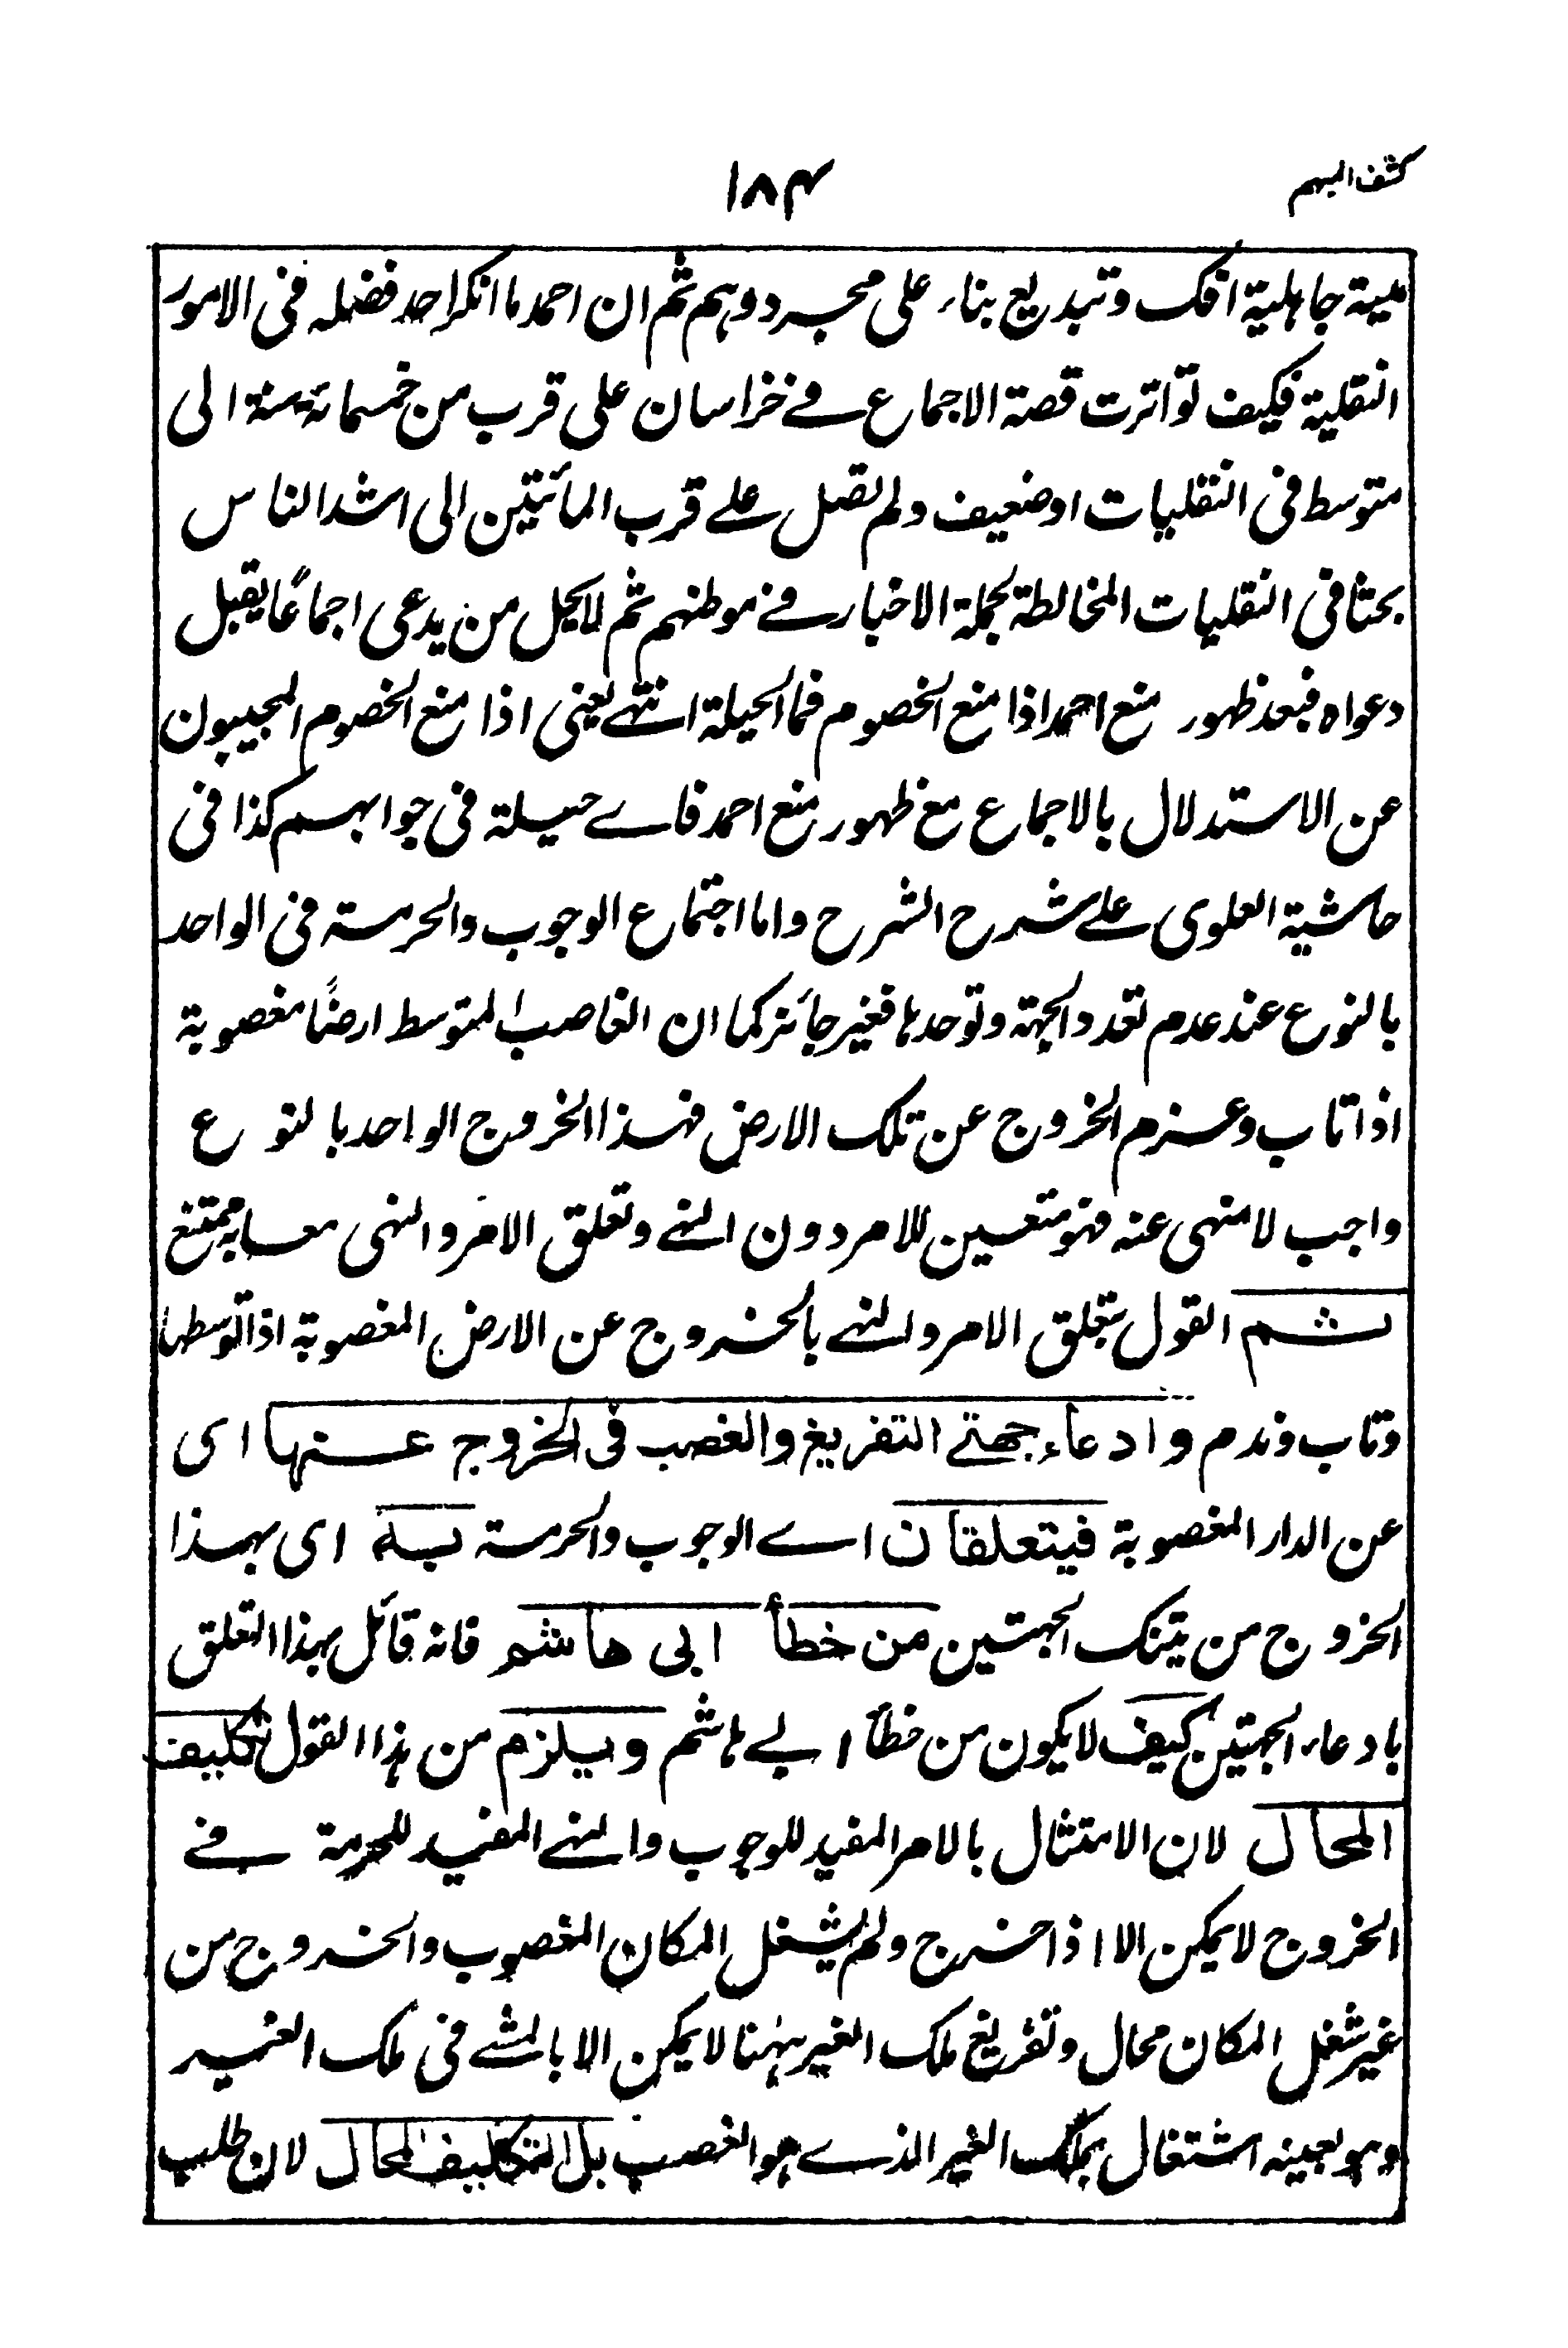 كشف المبهم
١٨٤
ميتة جاهلية افك وتبديع بناء على مجرد وهم ثم ان احمد ما انكر احد فضله فى الامور
النقلية فكيف تواترت قصة الاجماع فے خراسان على قرب من خمسمائة سنة الى
متوسط فى النقليات او ضعيف ولم تصل علے قرب المأتين الى اشد الناس
بحثا فى النقليات المخالطة بحملة الاخبار فے موطنهم ثم لا يحل من يدعى اجماعًا يقبل
دعواه فبعد ظهور منع احمد اذا منع الخصوم فما الحيلة انتهے يعنى اذا منع الخصوم المجيبون
عن الاستدلال بالاجماع مع ظهور منع احمد فاے حيلة فى جوابهم كذا فى
حاشية العلوى علے شرح الشرح واما اجتماع الوجوب والحرمة فى الواحد
بالنوع عند عدم تعدد الجهة وتوحدها فغير جائز كما ان الغاصب المتوسط ارضًا مغصوبة
اذا تاب وعزم الخروج عن تلك الارض فهذا الخروج الواحد بالنوع
واجب لا منهى عنه فهو متعين للامر دون النهے وتعلق الامر والنهى معا به ممتنع
ثم القول بتعلق الامر والنهے بالخروج عن الارض المغصوبة اذا توسطها
وتاب وندم وادعاء جهتے التفريغ والغصب فى الخروج عنها اى
عن الدار المغصوبة فيتعلقان اے الوجوب والحرمة به اى بهذا
الخروج من تينك الجهتين من خطأ ابى هاشم فانه قائل بهذا التعلق
بادعاء الجهتين كيف لا يكون من خطأ ابے هاشم ويلزم من هذا القول تكليف
المحال لان الامتثال بالامر المفيد للوجوب والنهے المفيد للحرمة فے
الخروج لا يمكن الا اذا خرج ولم يشغل المكان المغصوب والخروج من
غير شغل المكان محال وتفريغ ملك الغير ههنا لا يمكن الا بالمشے فى ملك الغير
وهو بعينه اشتغال بملك الغير الذے هو الغصب بل التكليف المحال لان طلب